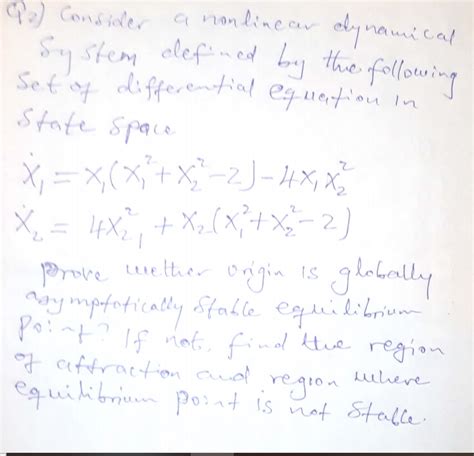 Q2) Consider a nonlinear dynamical
System defined by the following
Set of differential equation in
State space
Ẋ₁ = X₁(X₁² + X₂² - 2) - 4X₁X₂²
Ẋ₂ = 4X₂²₁ + X₂(X₁² + X₂² - 2)
prove wether origin is globally
asymptotically stable equilibrium
Point? If not, find the region
of attraction and region where
equilibrium point is not stable.